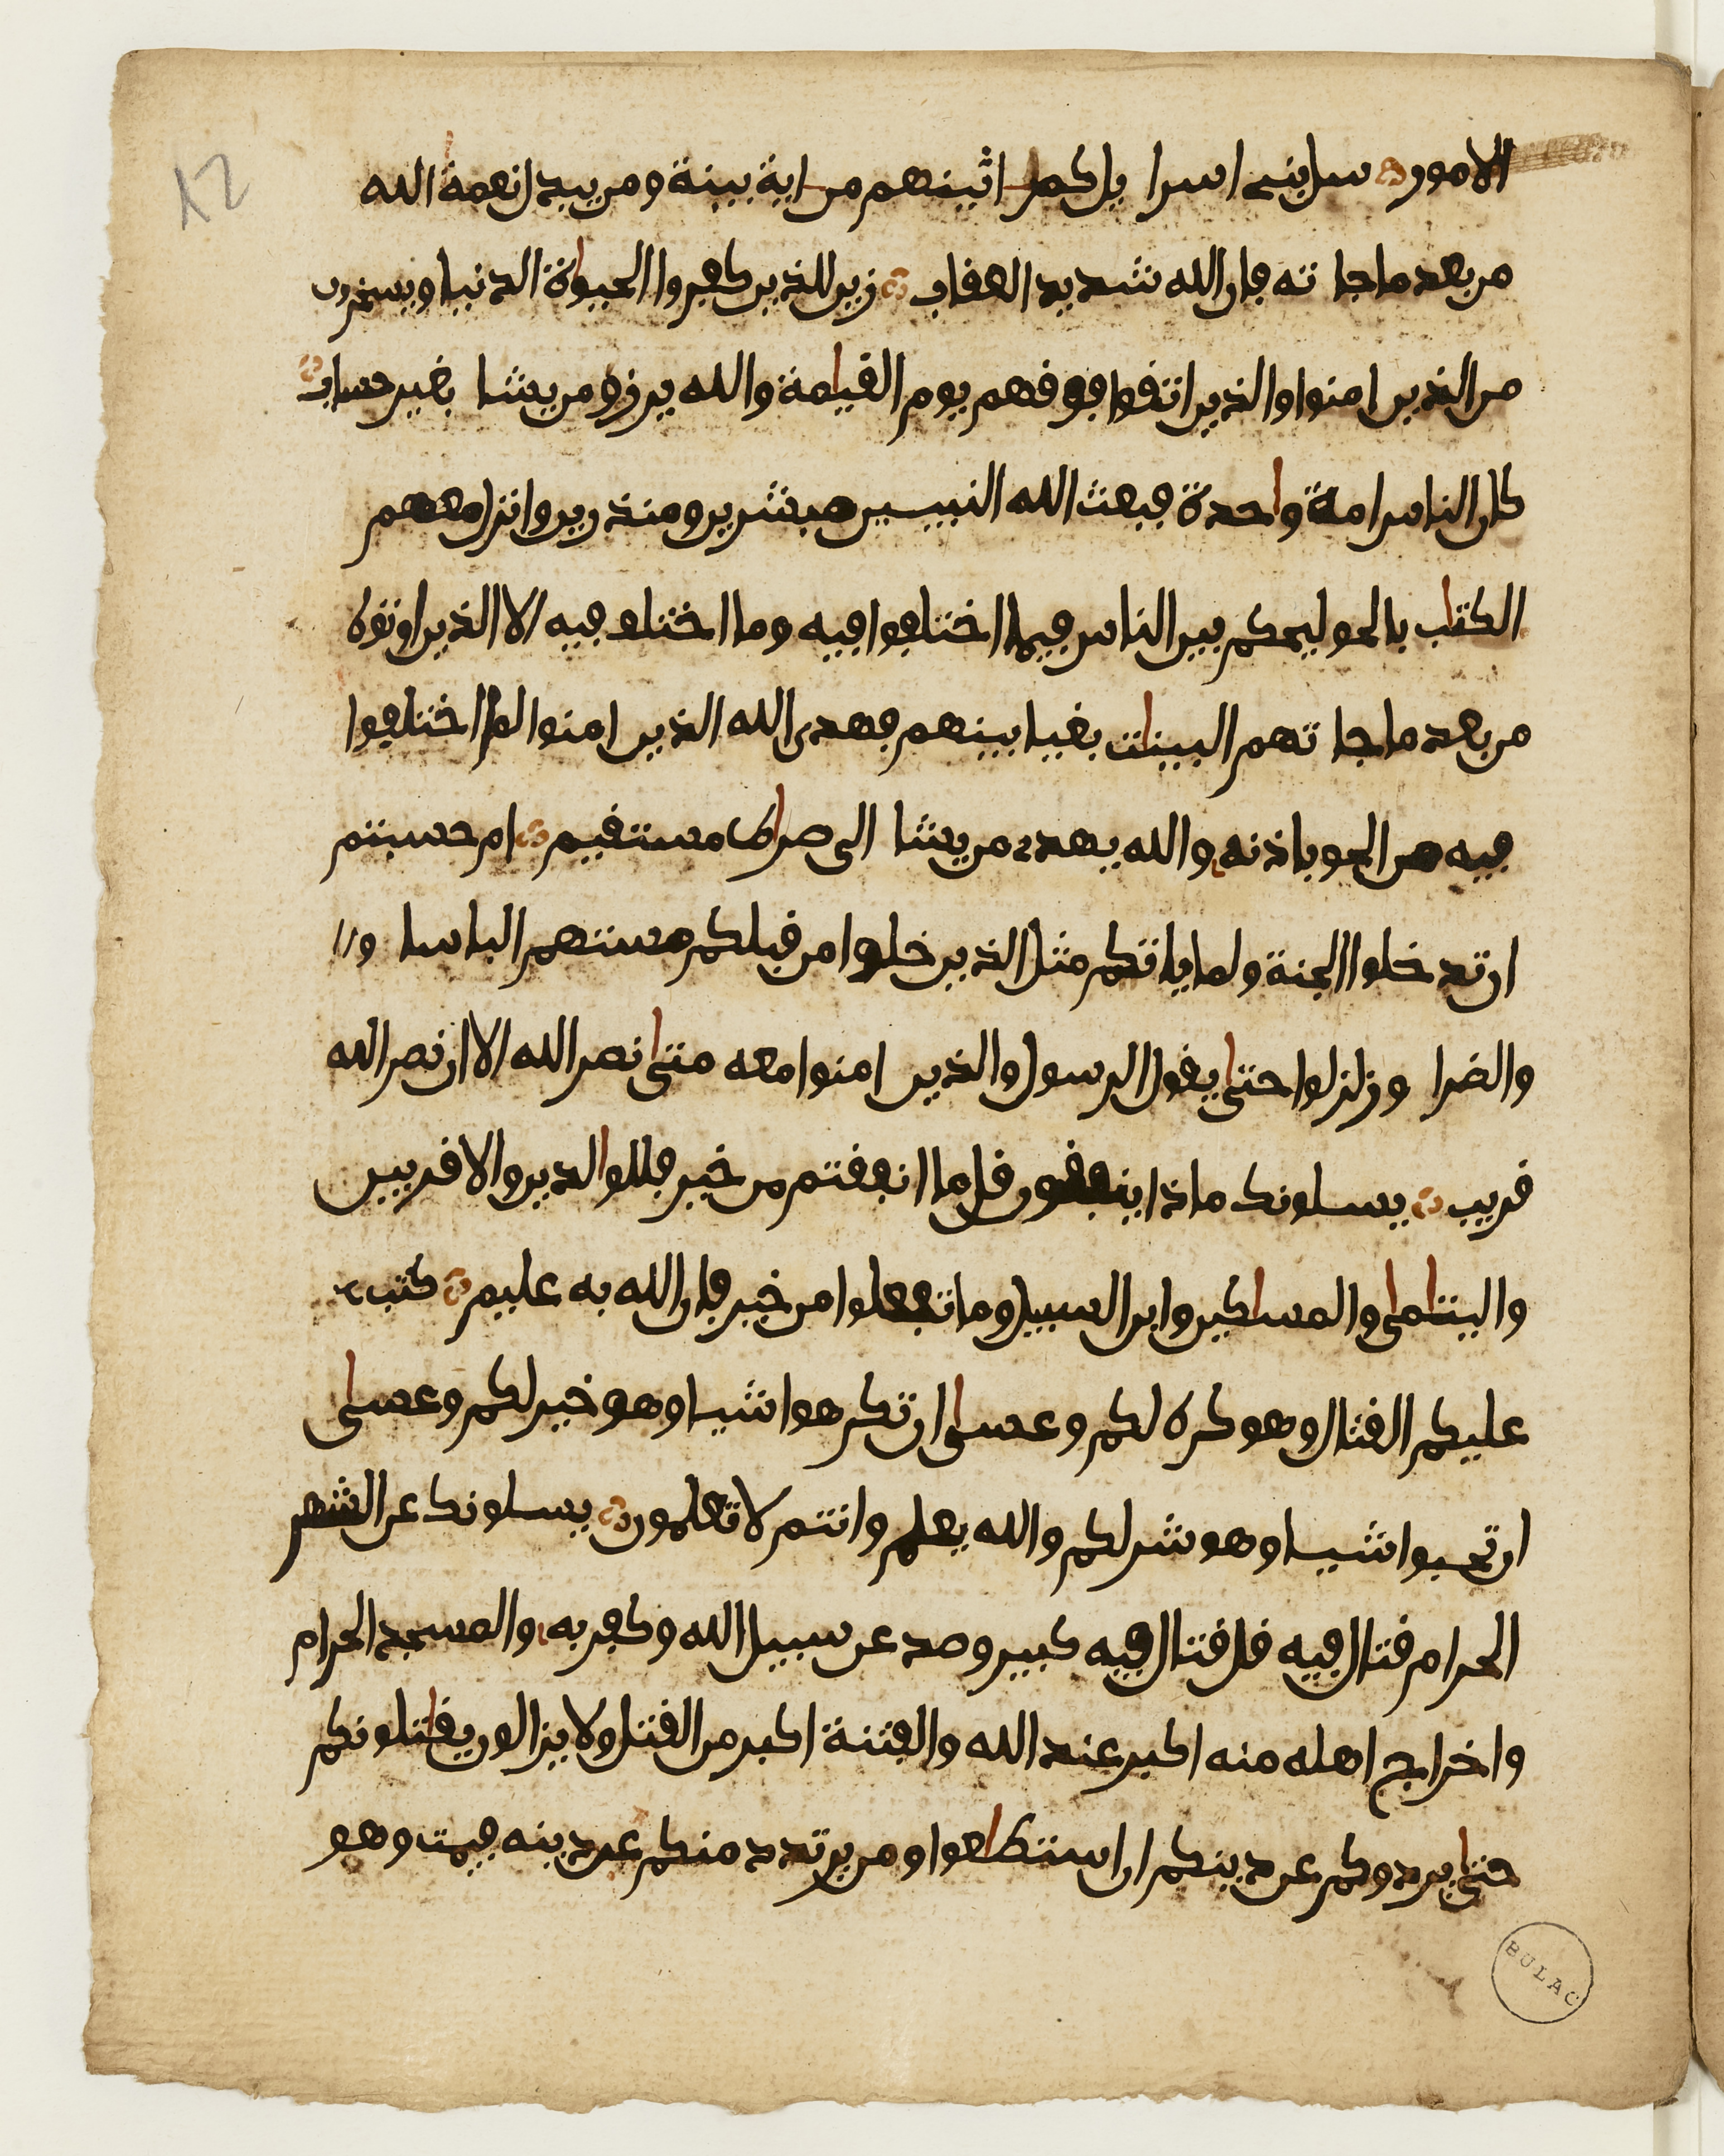 12
الامور سل بنى اسرا يل كم اتينهم من اية بينة ومن يبدل نعمة الله
من بعد ما جا ته فان الله شديد العقاب زين للذين كفروا الحيوة الدنيا ويسخرون
من الذين امنوا والذين اتقوا فوقهم يوم القيامة والله يرزق من يشا بغير حساب
كان الناس امة واحدة فبعث الله النبيين مبشرين ومنذرين وانزل معهم
الكتاب بالحق ليحكم بين الناس فيما اختلفوا فيه وما اختلف فيه الا الذين اوتوه
من بعد ما جا تهم البينات بغيا بينهم فهدى الله الذين امنوا لما اختلفوا
فيه من الحق باذنه والله يهدے من يشا الى صراط مستقيم ام حسبتم
ان تدخلوا الجنة ولما ياتكم مثل الذين خلوا من قبلكم مستهم الباسا و
والضرا وزلزلوا حتى يقول الرسول والذين امنوا معه متى نصر الله الا ان نصر الله
قريب يسلونك ماذا ينفقون قل ما انفقتم من خير فللوالدين والاقربين
واليتامى والمساكين وابن السبيل وما تفعلوا من خير فان الله به عليم كتب
عليكم القتال وهو كره لكم وعسى ان تكرهوا شيا وهو خير لكم وعسى
ان تحبوا شيا وهو شر لكم والله يعلم وانتم لا تعلمون يسلونك عن الشهر
الحرام قتال فيه قل قتال فيه كبير وصد عن سبيل الله وكفر به والمسجد الحرام
واخراج اهله منه اكبر عند الله والفتنة اكبر من القتل ولا يزالون يقاتلونكم
حتى يردوكم عن دينكم ان استطاعوا ومن يرتدد منكم عن دينه فيمت وهو
BULAC